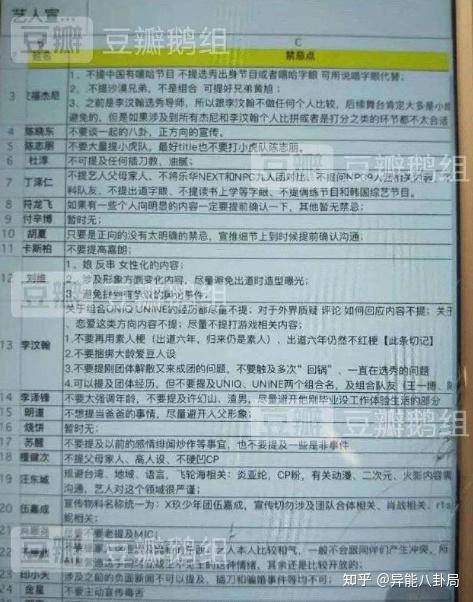 艺人宣...
豆瓣鹅组
姓名
C
禁忌点
1、不提中国有嘻哈节目 不提选秀出身节目或者嘻哈字眼 可用说唱字眼代替;
3
福杰尼
2、不提沙漠兄弟,不是组合 可提好兄弟黄旭;
3、之前是李汶翰选秀导师,所以跟李汶翰不做任何个人比较,后续舞台肯定大多是小
避免的,但是如果涉及到所有杰尼和李汶翰个人比拼或者是打分之类的环节都不太合适
4 陈晓东 不要谈一起的八卦、正方向的宣传。
5 陈志朋 不要大量提小虎队,最好title也不要打小虎队陈志朋。
豆瓣鹅组
6 杜淳 不可提及任何插刀教、油腻;
7 丁泽仁
不提艺人父母家人、不将乐华NEXT和NPC九人团对比、不提问NPC9人
科队友、不提出道字眼、不提读书上学等字眼、不提偶练节目和韩国综艺节目。
8 符龙飞 如果有一些个人向明显的内容一定要提前确认一下,其他暂无禁忌;
9 付辛博 暂时无;
10 胡夏 只要是正向的没有太明确的禁忌,宣推细节上到时候提前确认沟通;
11 卡斯柏 不要提高嘉朗;
1、娘 反串 女性化的内容;
12 刘维
2、涉及形象方面变化内容,尽量避免出道时造型曝光;
豆瓣鹅组
关于组合UNIQ UNINE的经历都尽量不提;对于外界质疑 评论 如何回应内容不提;关于
、恋爱这类方向内容不提;尽量不提打游戏相关内容;
13 李汶翰
1.不要再用素人梗(出道六年,归来仍是素人)、出道六年仍然不红梗【此条切记】
2.不要捆绑大龄爱豆人设
3.不要提刚团体解散又来成团的问题,不要触及多次”回锅”、一直在选秀的问题
4.可以提及团体经历,但不要提及UNIQ、UNINE两个组合名,及组合队友(王一博、
14 李泽锋 不要太强调年龄,不要提及许幻山、渣男,尽量避开他刚毕业没工作体验生活的部分
15 明道 不想提出爸爸的事情,尽量避开人父形象;
豆瓣鹅组
16 烧饼 暂时无;
17 苏醒 不要提及以前的感情绯闻炒作等事宜,也不要提及一些是非事件
18 檀健次 不提父母家人、高人设、不硬凹CP
19 汪东城
规避台湾、地域、语言,飞轮海相关:炎亚纶、CP粉,有关动漫、二次元、火影内容需
沟通,艺人对这个领域很严谨;
20 伍嘉成
宣传物料名称统一为:X玖少年团伍嘉成,宣传切勿涉及团队合体相关、肖战相关、
相关;
不要老提及MIC;
豆瓣鹅组
人本人比较和气,一般不会跟同伴们产生冲突,
情绪,其余还是比较开放的;
23 印小天 涉及之前的负面新闻不可以提及,插刀和骗婚事件等均不可;
24 金星 不要主动宣传毒舌
知乎 @异能八卦局